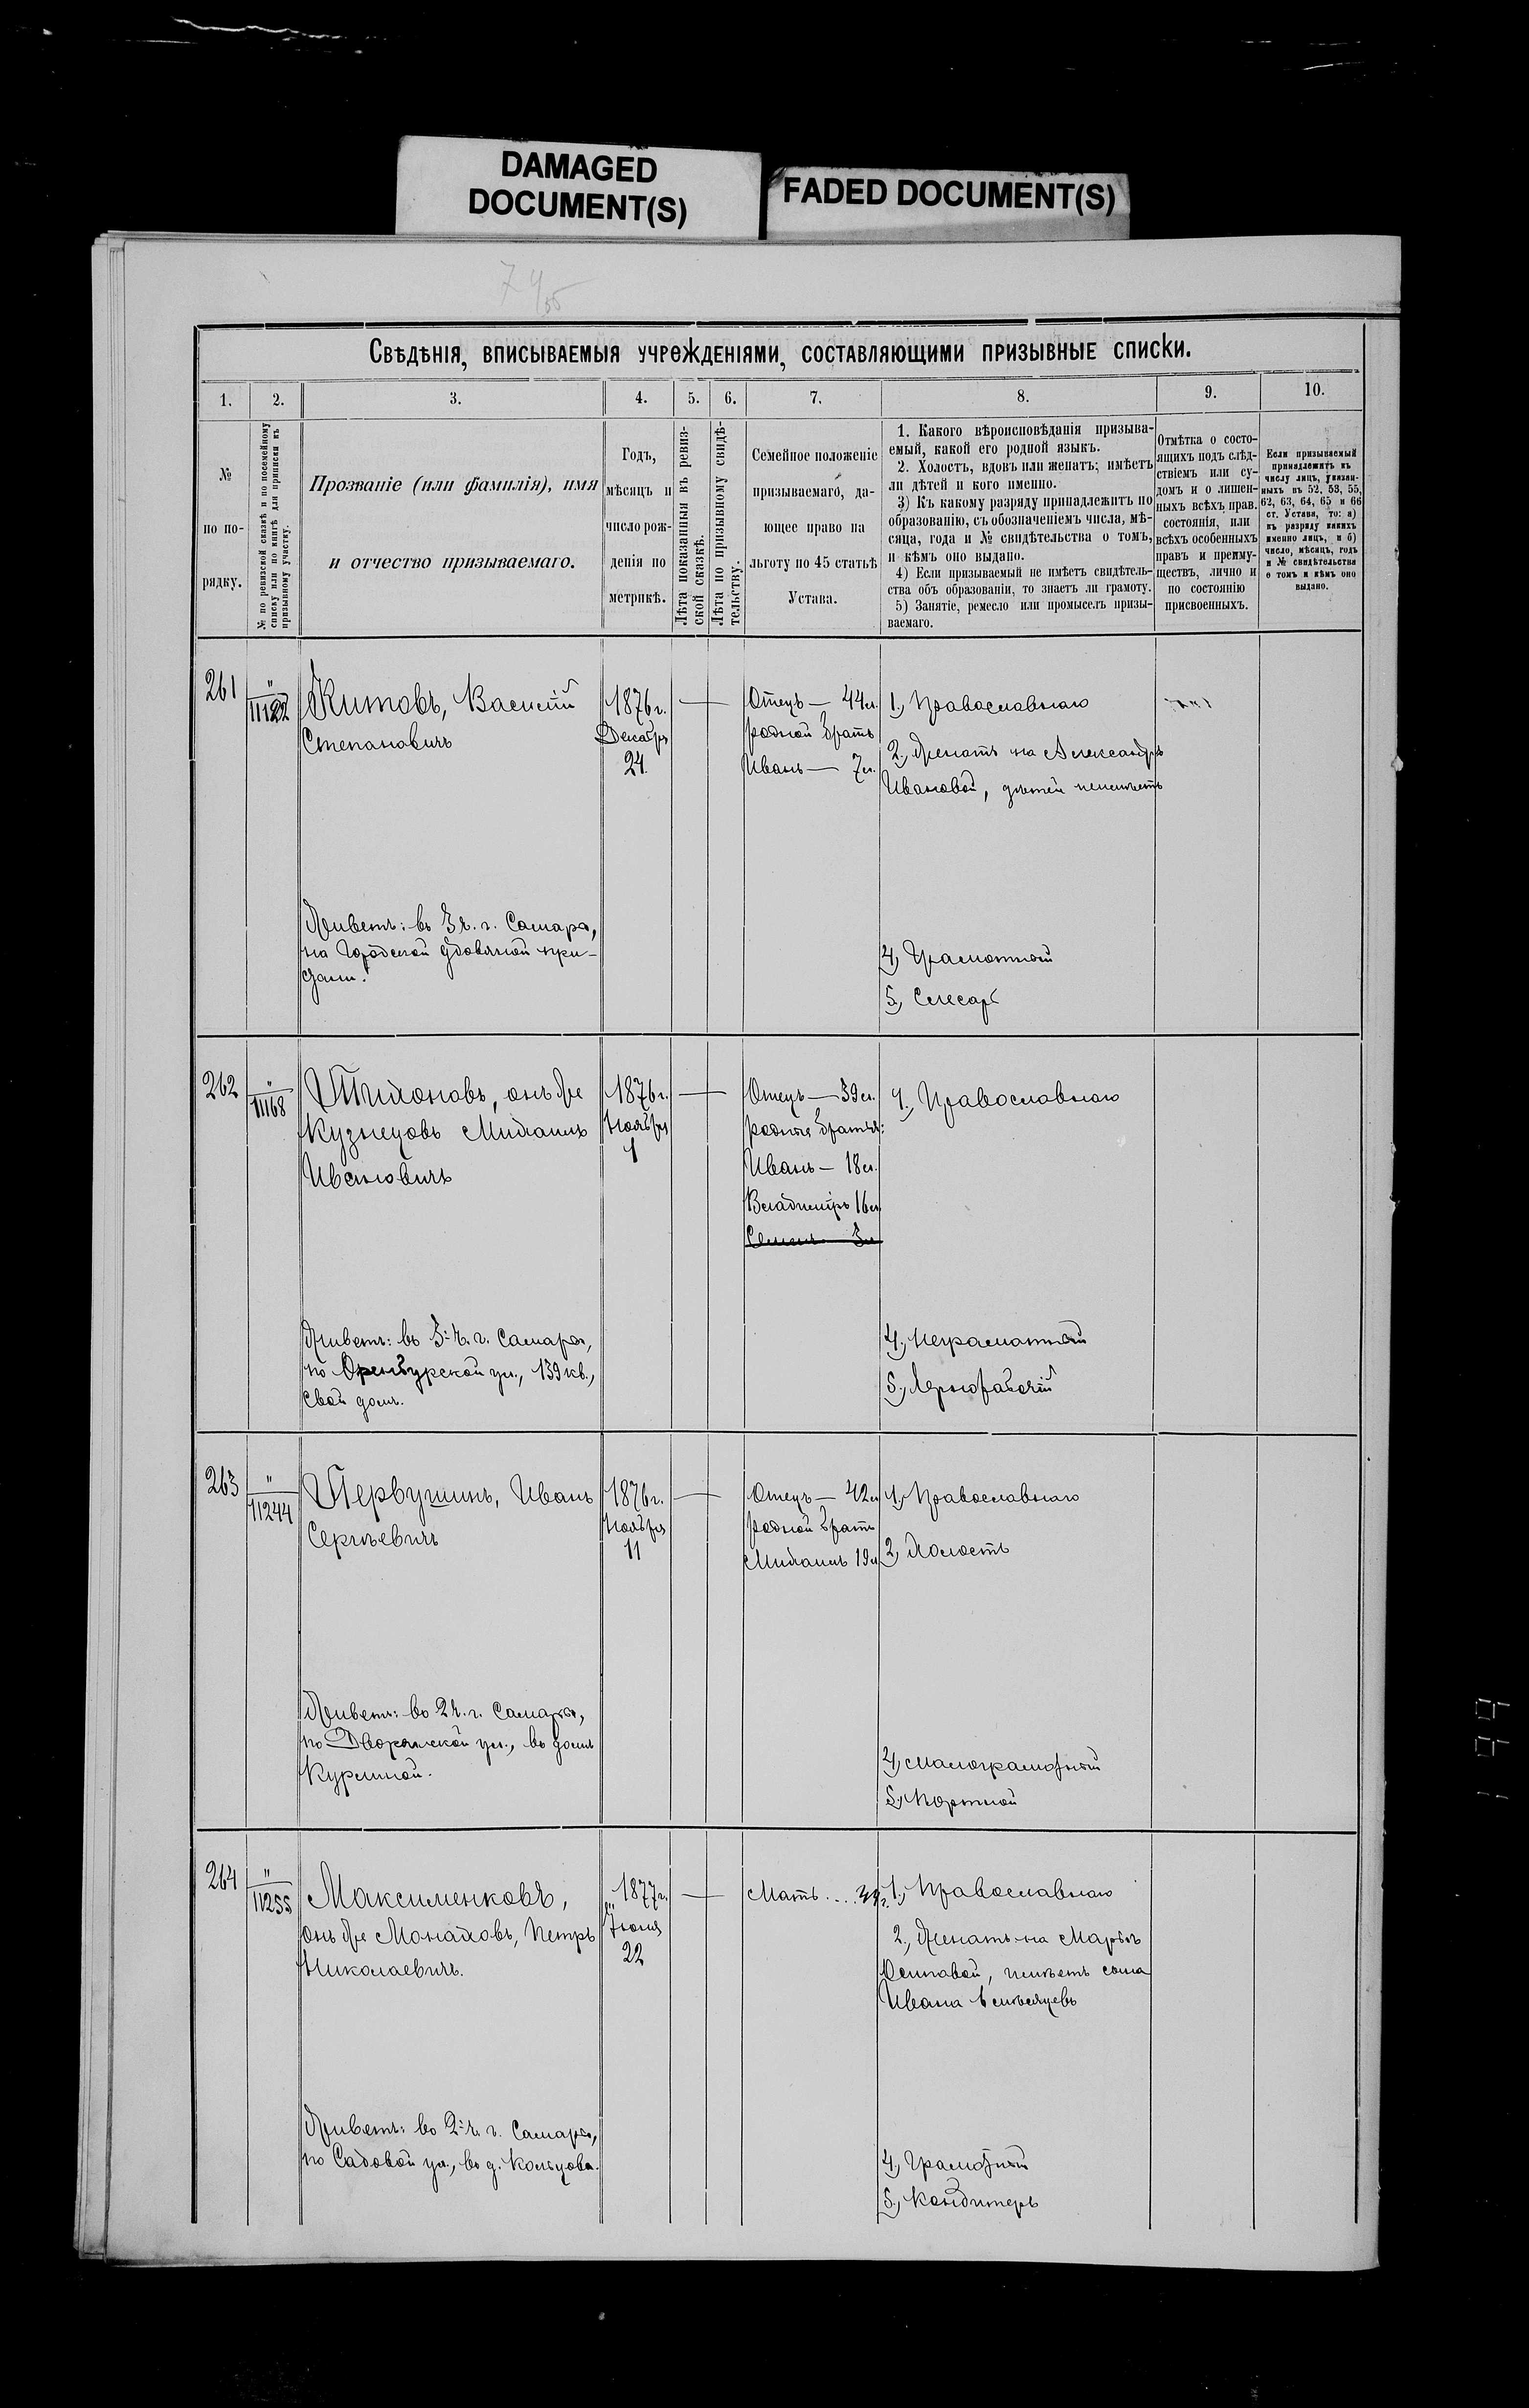 DAMAGED
DOCUMENT(S)
FADED DOCUMENT(S)
Свѣдѣнія, вписываемыя учрежденіями, составляющими призывные списки.
1. 2. 3. 4. 5. 6. 7. 8. 9. 10.
№
по по-
рядку.
№ по ревизской сказкѣ и по посемейному
списку или по книгѣ для приписки къ
призывному участку.
Прозваніе (или фамилія), имя
и отчество призываемаго.
Годъ,
мѣсяцъ и
число рож-
денія по
метрикѣ.
Лѣта показанныя въ ревиз-
ской сказкѣ.
Лѣта по призывному свидѣ-
тельству.
Семейное положеніе
призываемаго, да-
ющее право на
льготу по 45 статьѣ
Устава.
1. Какого вѣроисповѣданія призыва-
емый, какой его родной языкъ.
2. Холостъ, вдовъ или женатъ; имѣетъ
ли дѣтей и кого именно.
3) Къ какому разряду принадлежитъ по
образованію, съ обозначеніемъ числа, мѣ-
сяца, года и № свидѣтельства о томъ,
и кѣмъ оно выдано.
4) Если призываемый не имѣетъ свидѣтель-
ства объ образованіи, то знаетъ ли грамоту.
5) Занятіе, ремесло или промыселъ призы-
ваемаго.
Отмѣтка о состо-
ящихъ подъ слѣд-
ствіемъ или су-
домъ и о лишен-
ныхъ всѣхъ прав.
состоянія, или
всѣхъ особенныхъ
правъ и преиму-
ществъ, лично и
по состоянію
присвоенныхъ.
Если призываемый
принадлежитъ къ
числу лицъ, указан-
ныхъ въ 52, 53, 55,
62, 63, 64, 65 и 66
ст. Устава, то: а)
къ разряду какихъ
именно лицъ, и б)
число, мѣсяцъ, годъ
и № свидѣтельства
о томъ и кѣмъ оно
выдано.
261
"
Китовъ, Василій
Степановичъ
1876 г.
Декабря
24
Отецъ — 44 л.
родной братъ
Иванъ — 7 л.
1., Православнаго
2., Женатъ на Александрѣ
Ивановой, дѣтей неимѣетъ
Живетъ: въ 3 ч. г. Самары,
на Городской
4., Грамотный
5., Слесарь
262
"
11168
Тихоновъ, онъ же
Кузнецовъ Михаилъ
Ивановичъ
1876 г.
Ноября
1
Отецъ — 39 л.
родные братья:
Иванъ — 18 л.
Владиміръ 16 л.
Семенъ 3 л
1., Православнаго
Живетъ: въ 3 ч. г. Самары,
по Оренбурской ул., 139 кв.,
свой домъ.
4., Неграмотный
5., Чернорабочій
263
"
11244
Первушинъ, Иванъ
Сергѣевичъ
1876 г.
Ноября
11
Отецъ — 42 л
родной братъ
Михаилъ 19 л
1., Православнаго
2., Холостъ
Живетъ: во 2 ч. г. Самары,
по Дворянской ул., въ домѣ
Курлиной.
4., Малограмотный
5., Портной
264
"
11255
Максименковъ,
онъ же Монаховъ, Петръ
Николаевичъ.
1877 г.
Іюня
22
Мать
1., Православнаго
2., Женатъ на Марѳѣ
Осиповой, имѣетъ сына
Ивана
Живетъ: во 2 ч. г. Самары,
по Садовой ул., въ д. Кольцова.
4., Грамотный
5., Кондитеръ
199